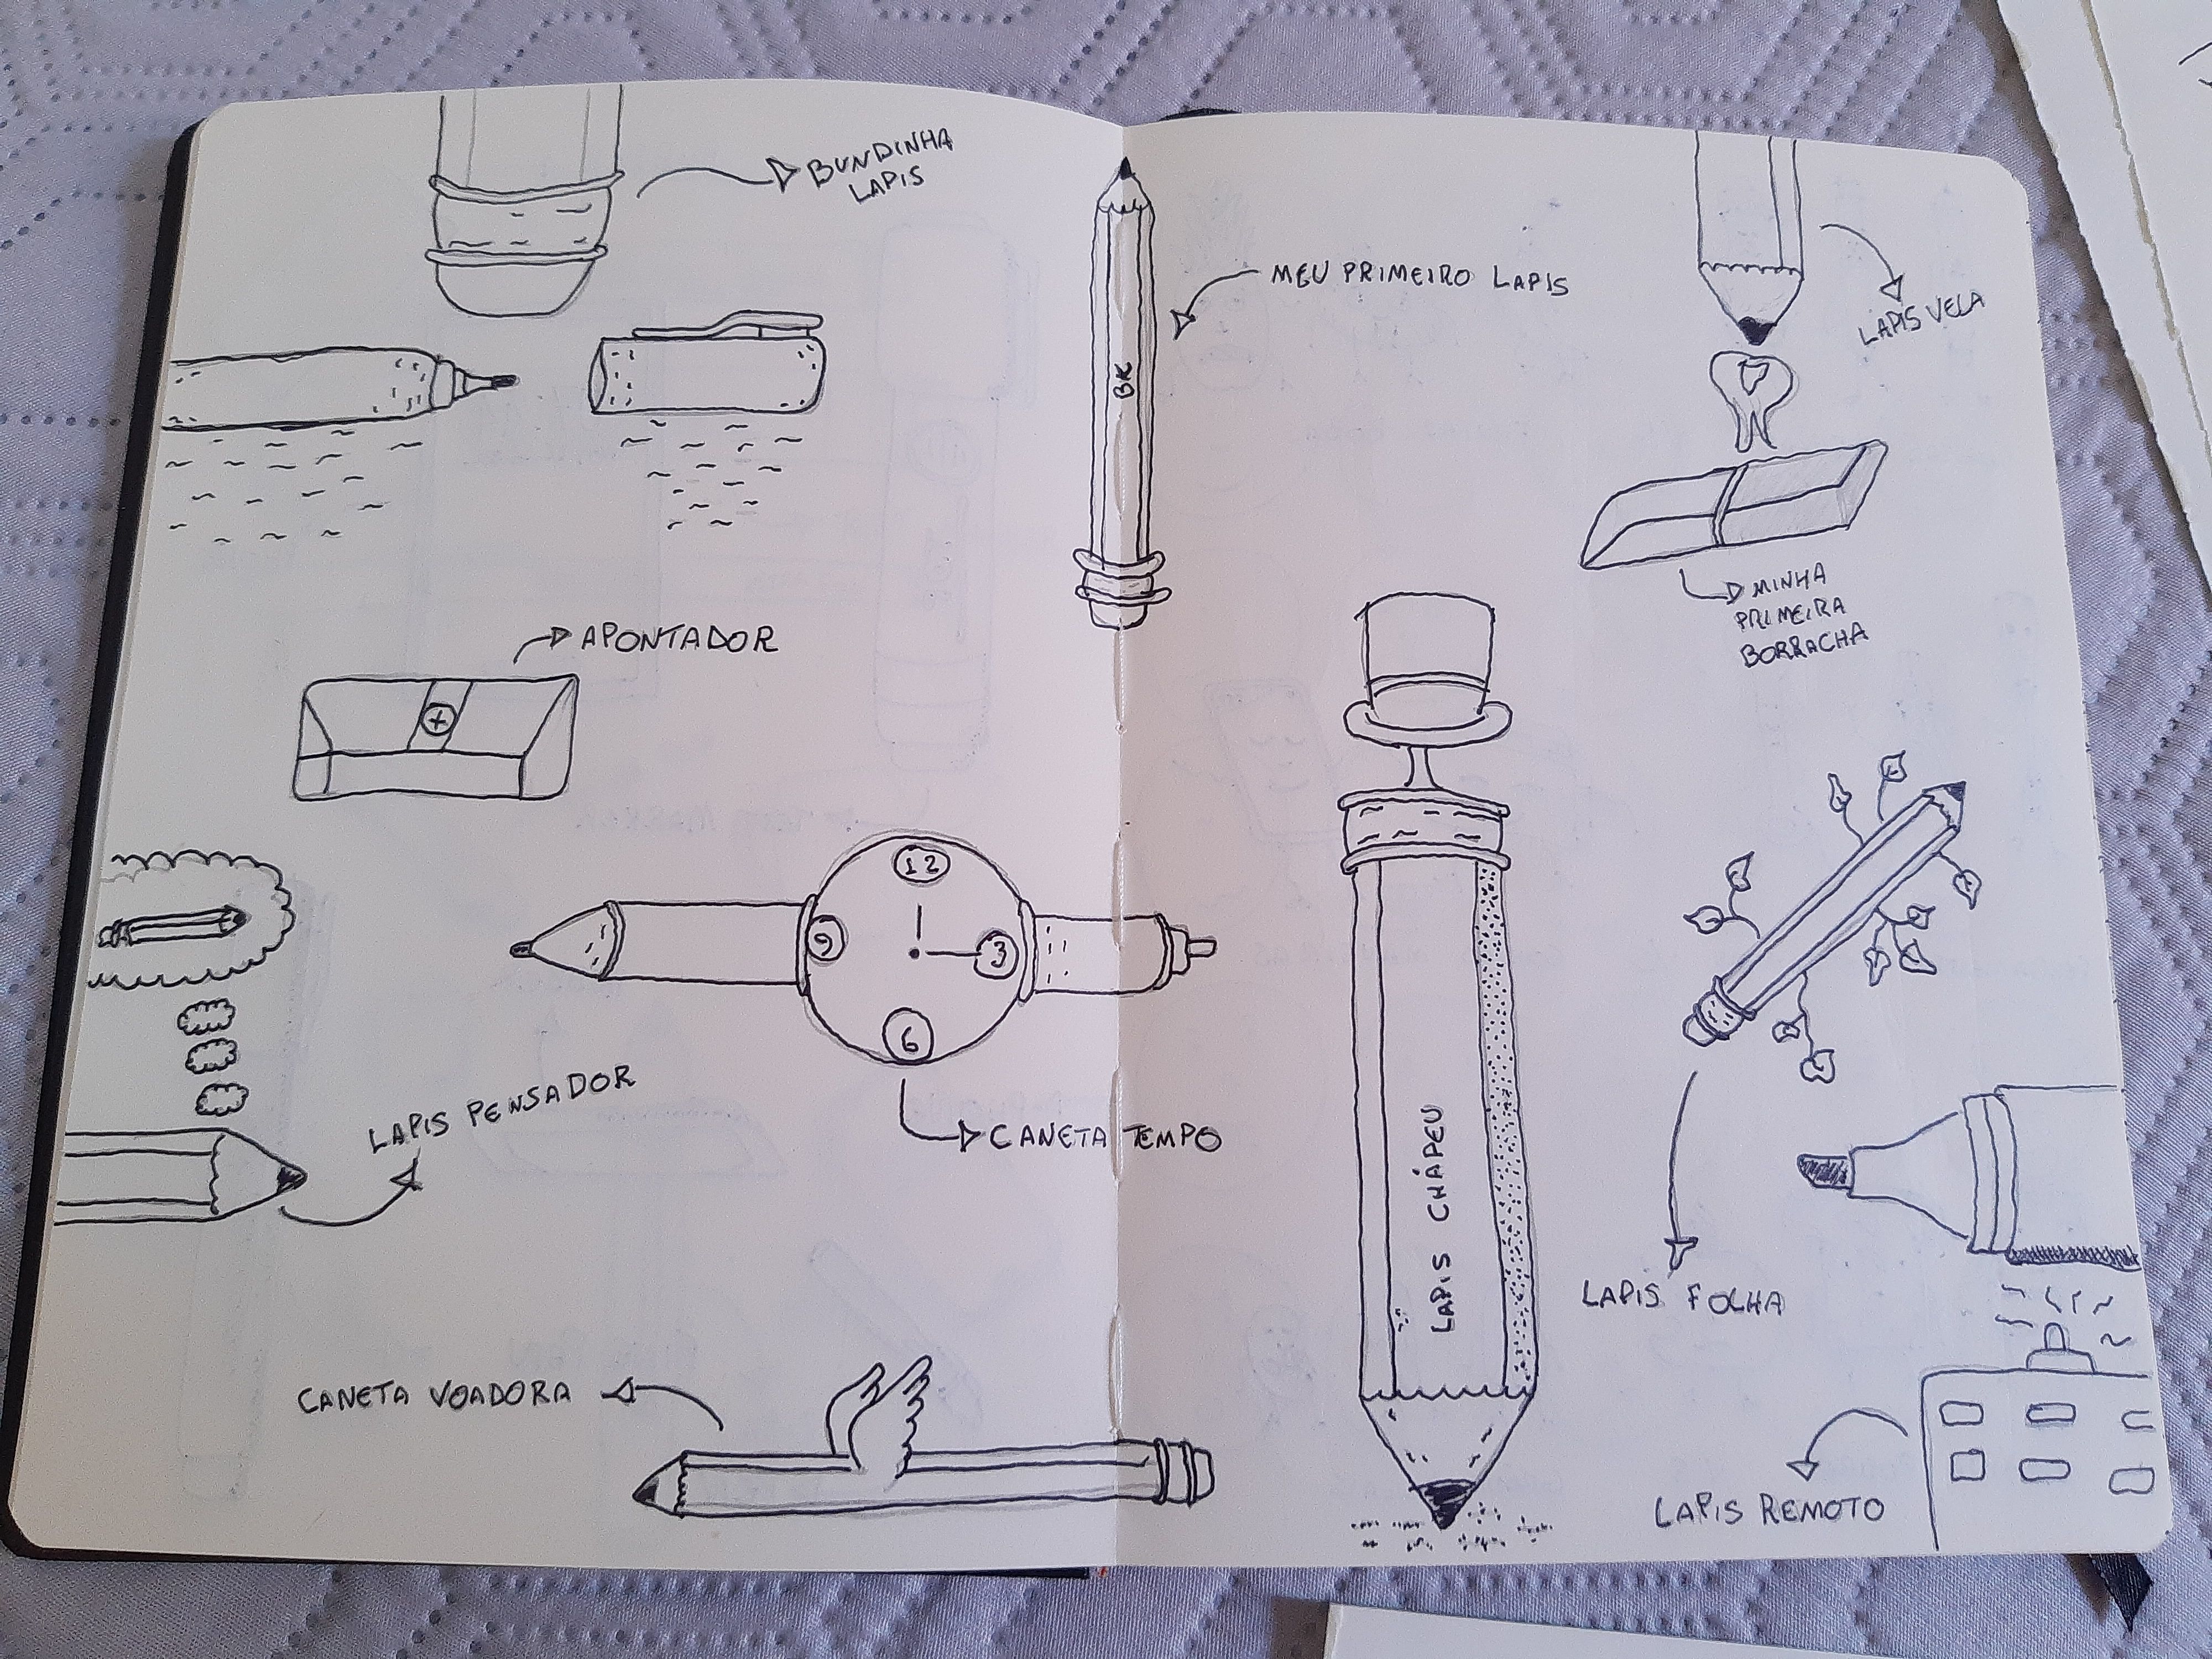 BUNDINHA
LAPIS
APONTADOR
12
9
3
6
LAPIS PENSADOR
CANETA TEMPO
CANETA VOADORA
BK
MEU PRIMEIRO LAPIS
LAPIS VELA
MINHA
PRIMEIRA
BORRACHA
LAPIS CHÁPEU
LAPIS FOLHA
LAPIS REMOTO